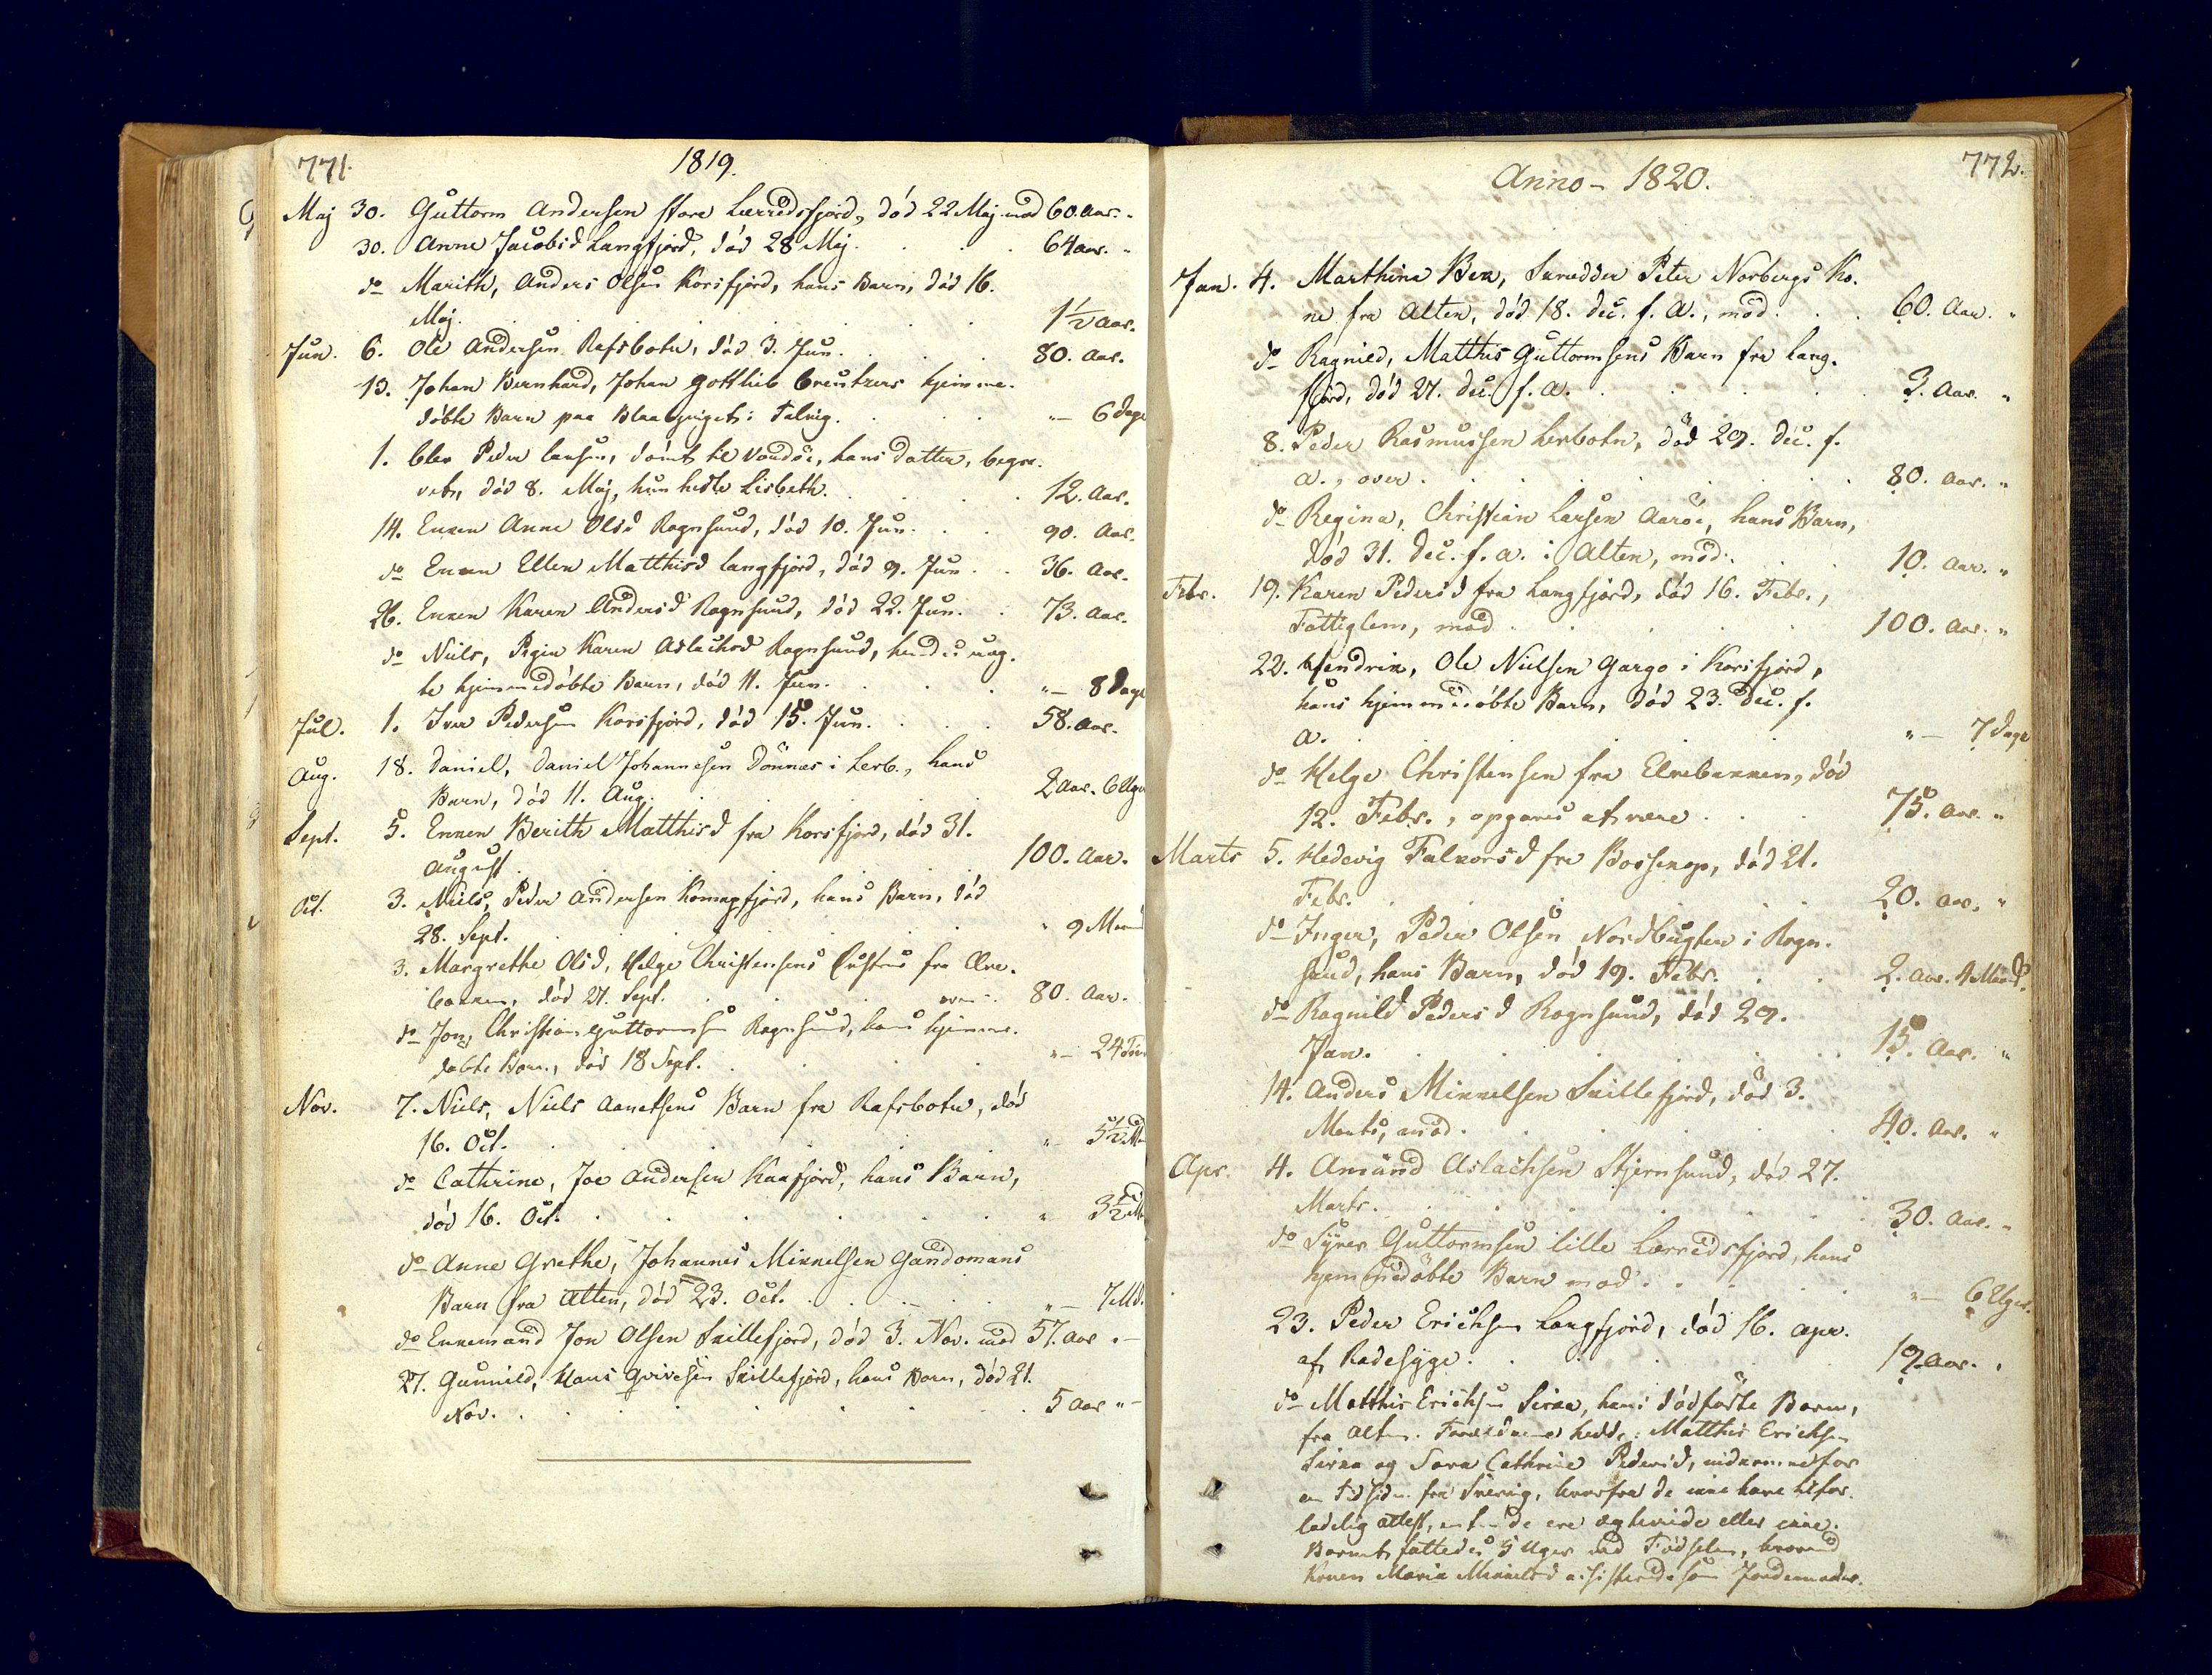 771.
1819.
Maj 30. Guttorm Andersen store Lerredsfjord, død 22 Maj mod 60. Aar. "
30. Anne Jacobsd Langfjord, død 28 Maj. 64 Aar. "
do Marith, Anders Olsen Korsfjord, hans Barn, død 16.
Maj. 1½ Aar.
Jun. 6. Ole Andersen Rafsbotn, død 3. Jun. 80. Aar.
13. Johan Bernhard, Johan Gottlieb Creutzers hjemme-
døbte Barn paa i Talvig. "— 6 Dage
1. blev Peder Larsen, dømt til Vardøe, hans Datter, begra-
vet, død 8. Maj, hun hedte Lisbeth. 12. Aar.
14. Enken Anne Olsd Rognsund, død 10. Jun. 90. Aar.
do Enken Ellen Matthisd Langfjord, død 9. Jun. 36. Aar.
26. Enken Karen Andersd Rognsund, død 22. Jun. 73. Aar.
do Niels, Pigen Karen Aslachsd Rognsund, hendes uæg-
te hjemmedøbte Barn, død 11. Jun. "— 8 Dage
Jul. 1. Iver Pedersen Korsfjord, død 15. Jun. 58. Aar.
Aug. 18. Daniel, Daniel Johannesen Dønnes i Lerb., hans
Barn, død 11. Aug. 2 Aar. 6 Uger
Sept. 5. Enken Berith Matthisd fra Korsfjord, død 31.
August 100. Aar.
Oct. 3. Niels, Peder Andersen Komagfjord, hans Barn, død
28. Sept. " 9 Maaned
3. Margrethe Olsd, Helge Christensens Hustrue fra Elve-
bakken, død 27. Sept. over 80. Aar.
do Jon, Christian Guttormsen Rognsund, hans hjemme-
døbte Barn, død 18 Sept. "— 24 Tim
Nov. 7. Niels, Niels Aanetsens Barn fra Rafsbotn, død
16. Oct. "— 5½ M
do Cathrine, Joe Andersen Kaafjord, hans Barn,
død 16. Oct. " 3½ M
do Anne Grethe, Johannes Mikkelsen Gandomans
Barn fra Alten, død 23. Oct. "— 7 Md.
do Enkemand Jon Olsen Skillefjord, død 3. Nov. mod 57. Aar "—
27. Gunnild, Hans Skillefjord, hans Barn, død 21.
Nov. 5 Aar "—
772.
Anno - 1820.
Jan. 4. Marthina Bea, Skrædder Peter Norbergs Ko-
ne fra Alten, død 18. Dec. f. A., mod 60. Aar. "
do Ragnild, Matthis Guttormsens Barn fra Lang-
fjord, død 27. Dec. f. A. 3. Aar. "
8. Peder Rasmussen Lerbotn, død 29. Dec. f.
A., over 80. Aar. "
do Regina, Christian Larsen Aarøe, hans Barn,
død 31. Dec. f. A. i Alten, mod 10. Aar. "
Febr. 19. Karen Pedersd fra Langfjord, død 16. Febr.,
Fattiglem, mod 100. Aar. "
22. Hendrik, Ole Nielsen Gargo i Korsfjord,
hans hjemmedøbte Barn, død 23. Dec. f.
A. "— 7 Dage
do Helge Christensen fra Elvebakken, død
12. Febr., opgaves at være 75. Aar. "
Marts 5. Hedevig Falkorsd fra Bossekop, død 21.
Febr. 20. Aar. "
do Inger, Peder Olsen Nordbugten i Rogn-
sund, hans Barn, død 19. Febr. 2. Aar. 4 Maand.
do Ragnild Pedersd Rognsund, død 29.
Jan. 15. Aar. "
14. Anders Mikkelsen Skillefjord, død 3.
Marts, mod 40. Aar. "
Apr. 4. Amund Aslachsen Stjernsund, død 27.
Marts. 30. Aar. "
do Syver Guttormsen lille Lerredsfjord, hans
hjemmedøbte Barn mod "— 6 Uger.
23. Peder Erichsen Langfjord, død 16. Apr.
af Radesyge. 19. Aar. "
do Matthis Erichsen Sirka, hans dødfødte Barn,
fra Alten. Forældrene hedde: Matthis Erichsen
Sirka og Sara Cathrine Pedersd, indkomne for
en Tid siden fra Sverrig, hvorfra de ikke have tilfor-
ladelig Attest, enten de ere ægteviede eller ikke.
Barnet fattedes 5 Uger ved Fødselen, hvorved
Konen Maria Mikkelsd assisterede som Jordemoder.